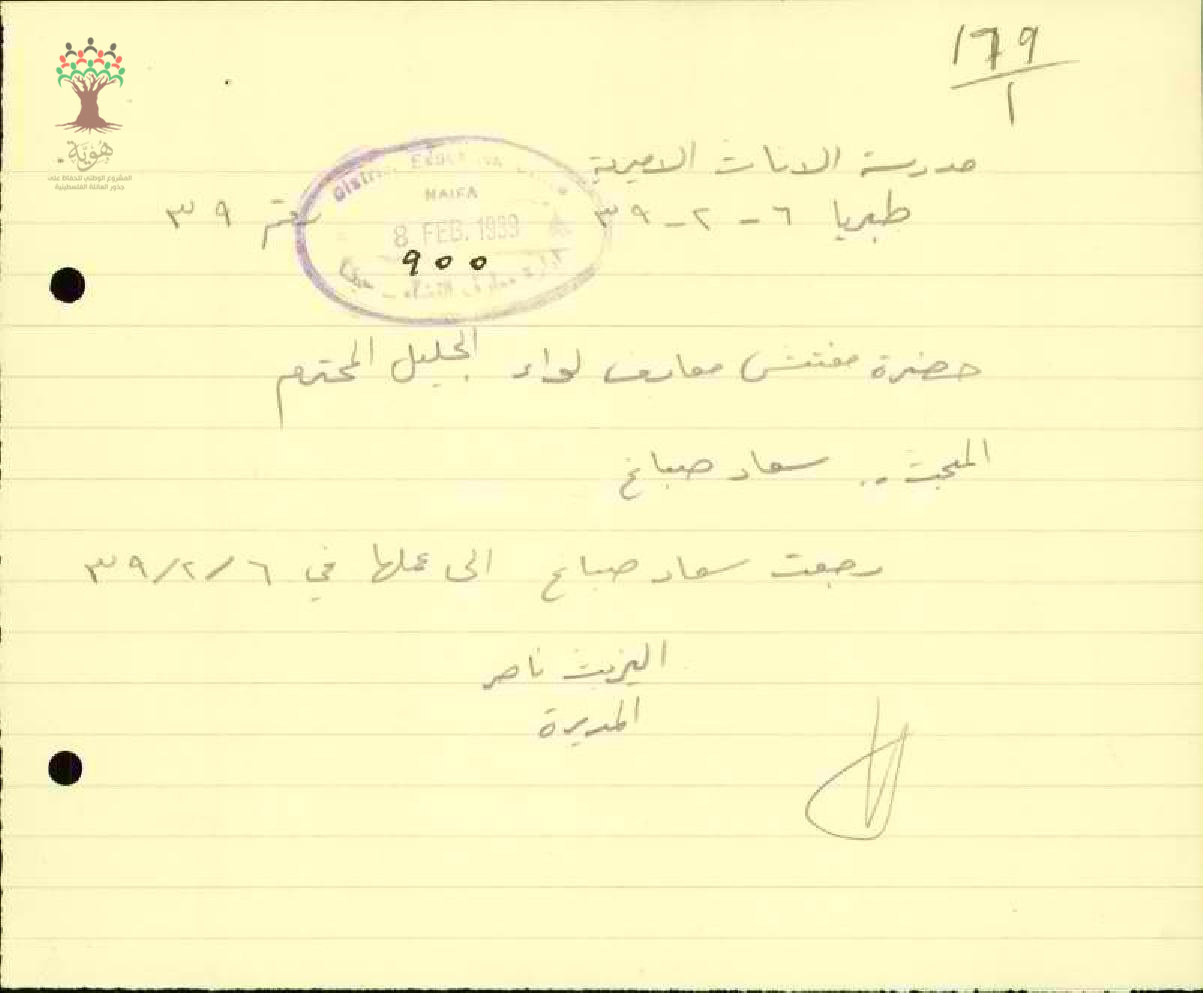 179
1
هُوِيَّة
المشروع الوطني للحفاظ على
جذور العائلة الفلسطينية
مدرسة الاناث الاميرية
طبريا ٦ - ٢ - ٣٩ رقم ٣٩
District Education
HAIFA
8 FEB. 1939
900
حضرة مفتش معارف لواء الجليل المحترم
المبحث .. سعاد صباغ
رجعت سعاد صباغ الى عملها في ٣٩/٢/٦
اليزبث ناصر
المديرة